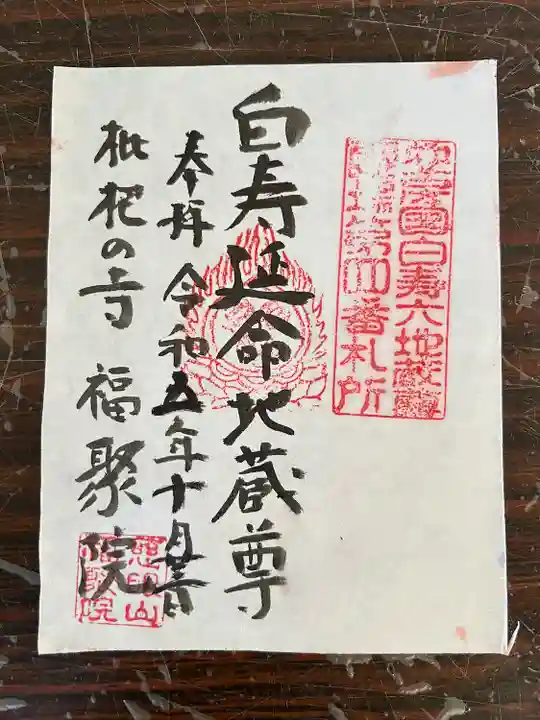 国白寿六地蔵霊
第四番札所
白寿延命地蔵尊
奉拝 令和五年十月吉日
枇杷の寺 福聚院
山
福聚院